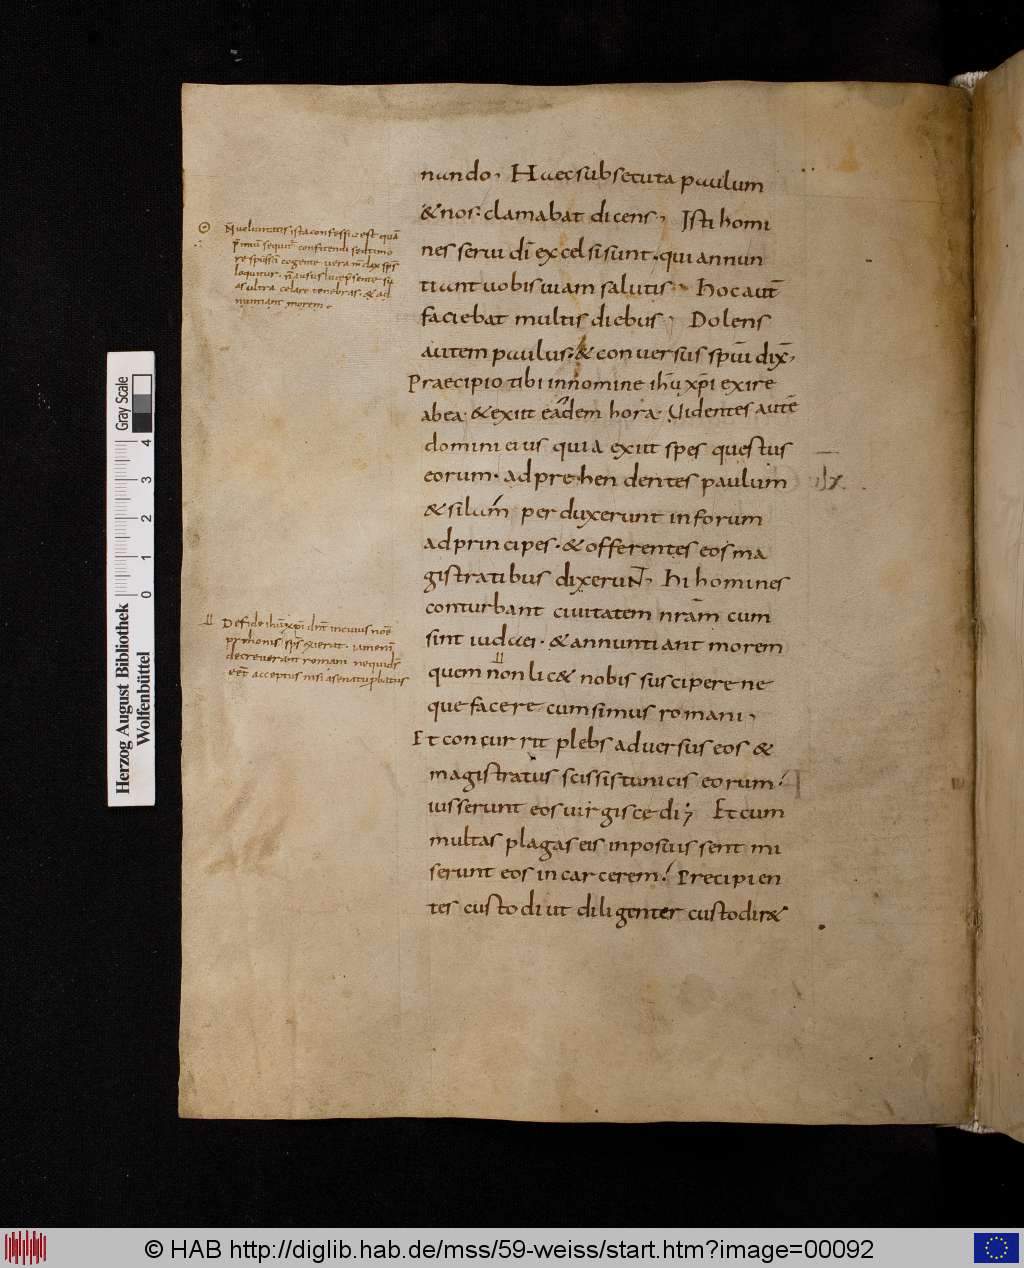 nando, Haec subsecuta paulum
& nos. clamabat dicens, Isti homi
nes serui dī excelsi sunt. qui annun
tiant uobis uiam salutis. hoc aut̄
faciebat multis diebus, Dolens
autem paulus. & conuersus spūi dix̄,
Praecipio tibi in nomine ihū xp̄i exire
abea. & exiit eadem hora. Uidentes autē
domini eius quia exiit spes questus
eorum. adprehendentes paulum
& silam perduxerunt in forum
ad principes. & offerentes eos ma
gistratibus dixerunt, hi homines
conturbant ciuitatem nrām cum
sint iudaei. & annuntiant morem
quem non lic& nobis suscipere ne
que facere cum simus romani,
Et concurrit plebs aduersus eos &
magistratus scissis tunicis eorum
iusserunt eos uirgis cedi; Et cum
multas plagas eis inposuissent mi
serunt eos in carcerem. Precipien
tes custodi ut diligenter custodir&
N̄ uoluntatis ista confessio est quā
loquitur.
celare tenebras. & ad
nuntiant morem.
De fide ihū xp̄i
decreuerant romani nequis ds̄
acceptus nisi a senatu
lx.
Gray Scale
4
3
2
1
0
Herzog August Bibliothek
Wolfenbüttel
© HAB http://diglib.hab.de/mss/59-weiss/start.htm?image=00092